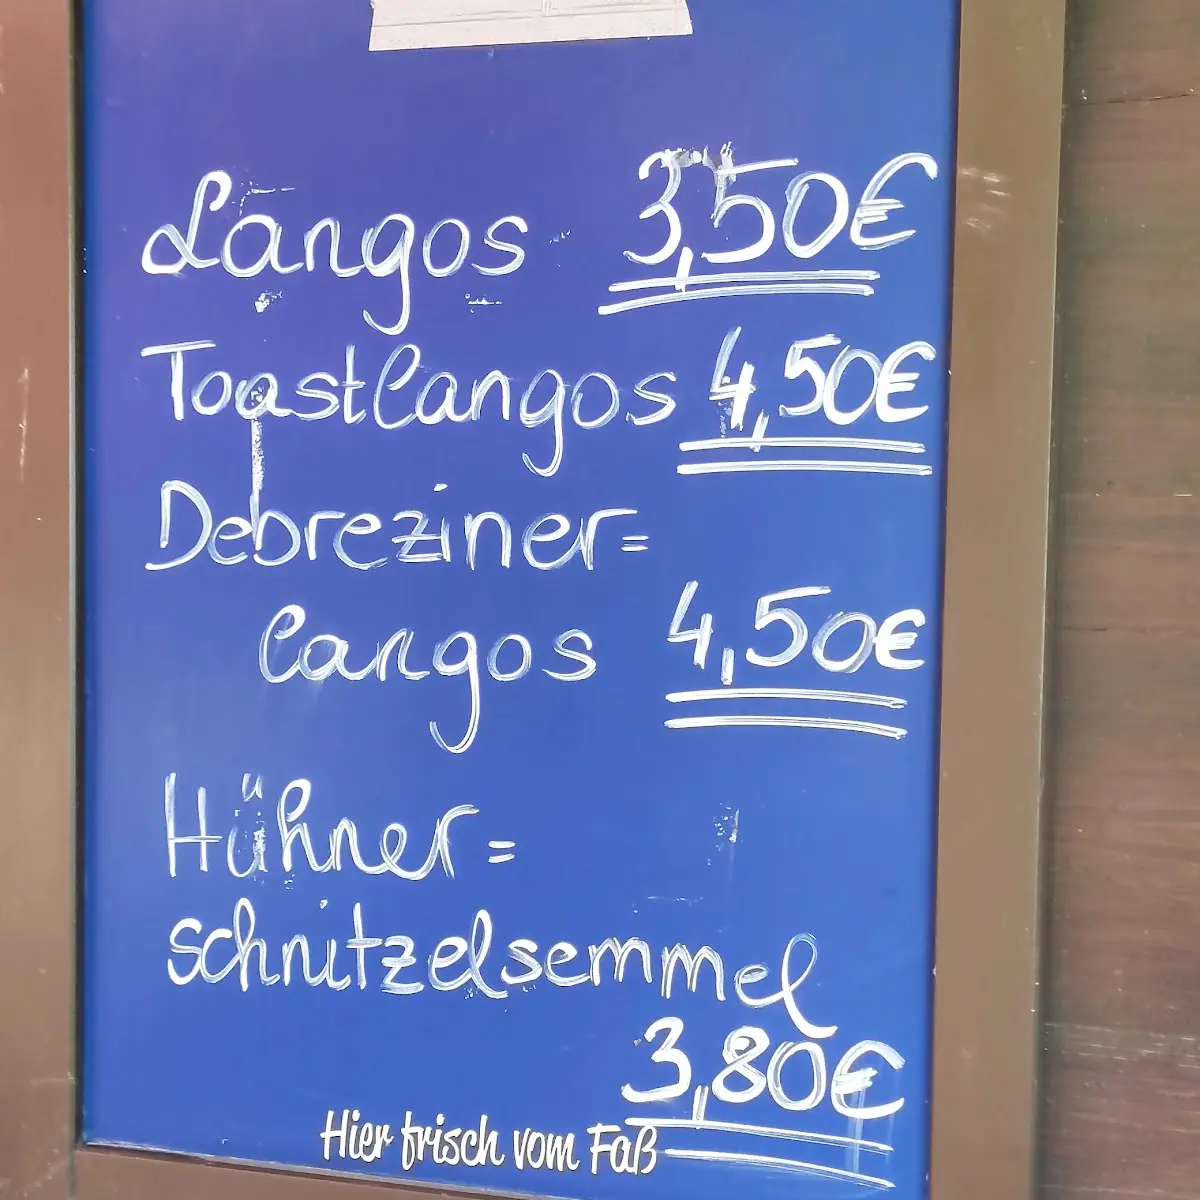 Langos 3,50€
Toastlangos 4,50€
Debreziner=
langos 4,50€
Hühner=
schnitzelsemmel
3,80€
Hier frisch vom Faß